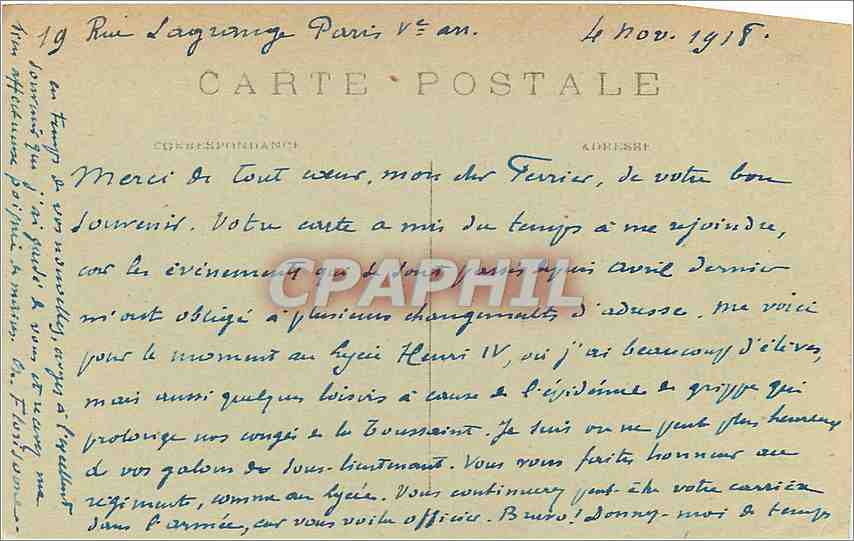 19 Rue Lagrange Paris Ve arr. 4 nov. 1918.
CARTE POSTALE
CORRESPONDANCE ADRESSE
Merci de tout cœur, mon cher Ferrier, de votre bon
souvenir. Votre carte a mis du temps à me rejoindre,
car les évènements qui se sont passés depuis avril dernier
m'ont obligé à plusieurs changements d'adresse. Me voici
pour le moment au lycée Henri IV, où j'ai beaucoup d'élèves,
mais aussi quelques loisirs à cause de l'épidémie de grippe qui
prolonge nos congés de la Toussaint. Je suis on ne peut plus heureux
de vos galons de sous-lieutenant. Vous vous faites honneur au
régiment, comme au lycée. Vous continuerez peut-être votre carrière
dans l'armée, car vous voilà officier. Bravo! Donnez-moi de temps
en temps de vos nouvelles, croyez à l'excellent
souvenir que j'ai gardé de vous et recevez ma
bien affectueuse poignée de mains.
CPAPHIL